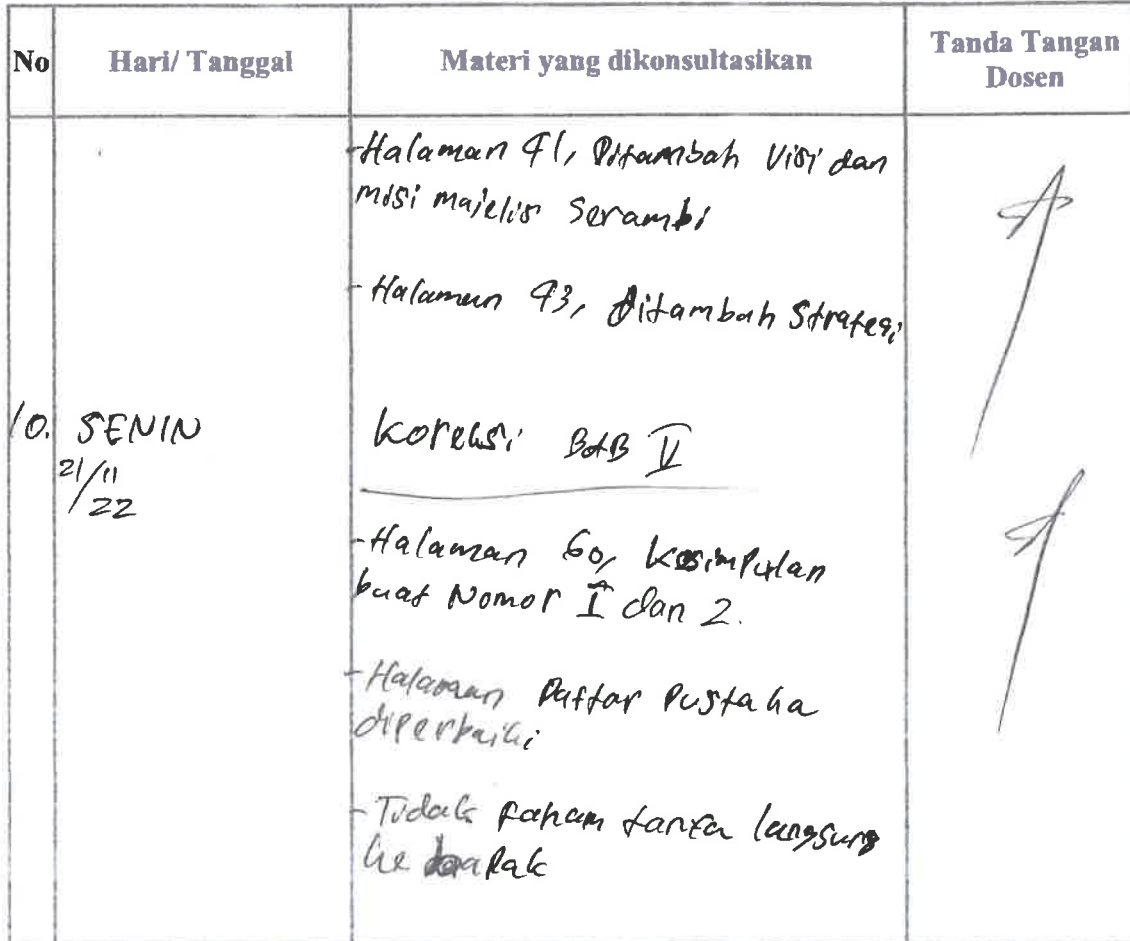 No
Hari/ Tanggal
Materi yang dikonsultasikan
Tanda Tangan
Dosen
-Halaman 41, Ditambah Visi dan
misi majelis Serambi
-Halaman 43, Ditambah Strategi
10. SENIN
21/11
22
koreksi BAB V
-Halaman 60, kesimpulan
buat Nomor 1 dan 2.
-Halaman Daftar Pustaka
diperbaiki
-Tidak faham tanya langsung
ke bapak